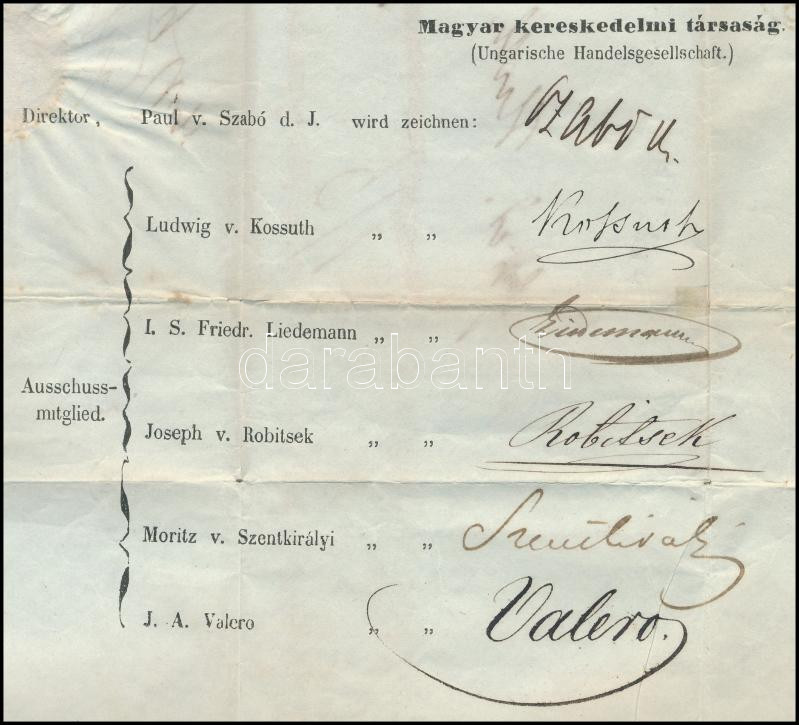 Magyar kereskedelmi társaság.
(Ungarische Handelsgesellschaft.)
Direktor, Paul v. Szabó d. J. wird zeichnen: Szabó
Ludwig v. Kossuth „ „ Kossuth
I. S. Friedr. Liedemann „ „ Liedemann
darabanth
Ausschuss-
mitglied.
Joseph v. Robitsek „ „ Robitsek
Moritz v. Szentkirályi „ „ Szentkirályi
J. A. Valero „ „ Valero.